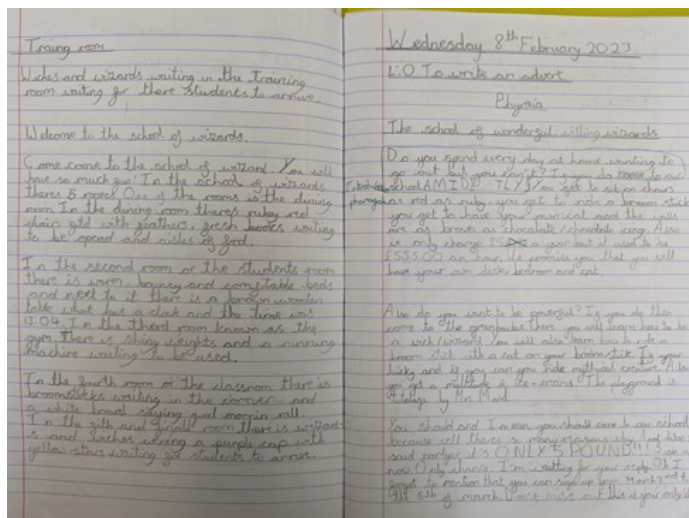 Traing room
Wiches and wizards waiting in the training
room waiting for there students to arrive.
Welcome to the school of wizards.
Come come to the school of wizard You will
have so much fun! In the school of wizards
theres 5 rooms! One of the rooms is the dining
room In the dining room theres ruby red
chairs with feathers, fresh books waiting
to be opend and aisles of food.
In the second room or the students room
there is warm bouncy and beds
and next to it there is a brown wooden
table what has a clock and the time was
13:04. In the third room known as the
gym there is shiny weights and a running
machine waiting to be used.
In the fourth room or the classroom there is
broomsticks waiting in the corner, and
a white board saying good mornin
In the fith and finall room there is wizard
s and wiches wearing a purple cap with
yellow stars waiting for students to arrive.
Wednesday 8th February 2023
L:O To write an advert
The school of wonderful willing wizards
Do you spend every day at home wanting to
go out but you can't? If you do come to our
school You get to sit on chairs
as red as ruby, you get to ride a broom stick
you get to have your own cat and the
are as brown as chocolate/chocolate icing. Also
is only charge a year but it used to be
£555.00 an hour. We promise you that you will
have your own desk, bedroom and cat.
Also do you want to be powerful? If you do then
come to the there you will learn how to be
a wich/wizard. You will also learn how to ride a
broom stick with a cat on your broom stick. If your
lucky and if you can you ride mythical creature. Also
you get a multitude of The playground is
by Mr.
You should and I mean you should come to our school
because well there so many reasons why. And like I
said it's ONLY 5 POUND!!!
now Only chance. I'm waiting for your reply. Oh I
forgot to mention that you can sign up from March 2nd to
the 6th of march. Don't miss out this is your only